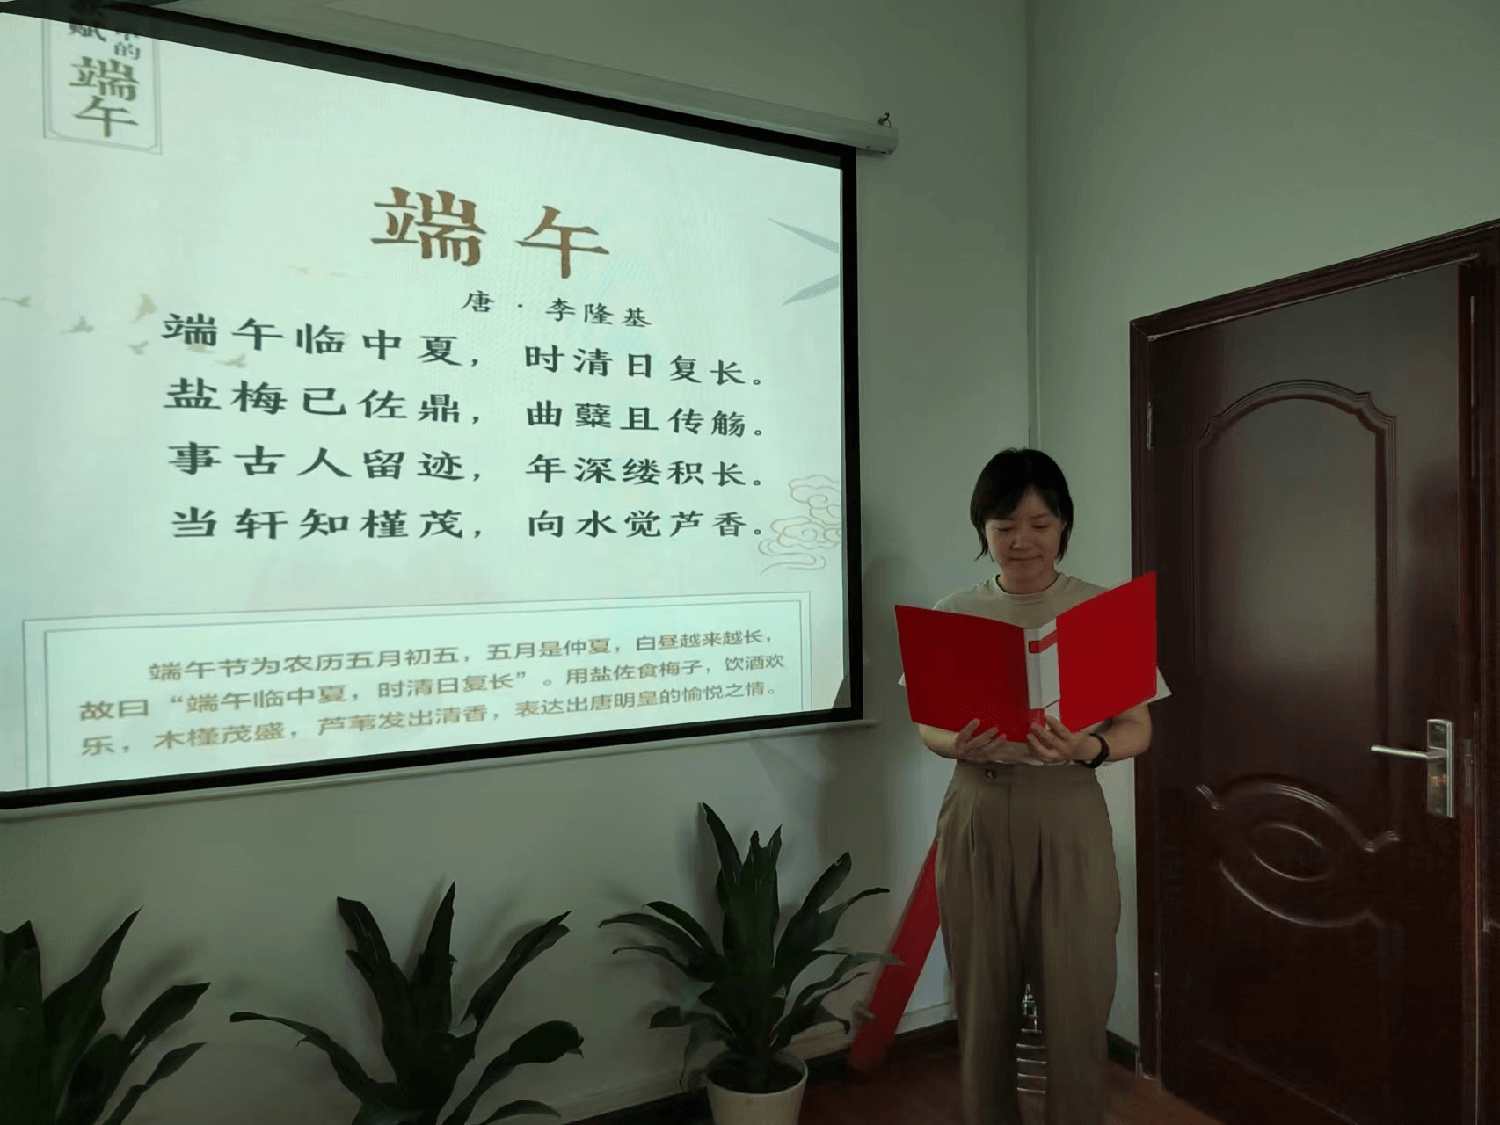 赋
的
端午
端午
唐·李隆基
端午临中夏，时清日复长。
盐梅已佐鼎，曲糵且传觞。
事古人留迹，年深缕积长。
当轩知槿茂，向水觉芦香。
端午节为农历五月初五，五月是仲夏，白昼越来越长，
故曰“端午临中夏，时清日复长”。用盐佐食梅子，饮酒欢
乐，木槿茂盛，芦苇发出清香，表达出唐明皇的愉悦之情。